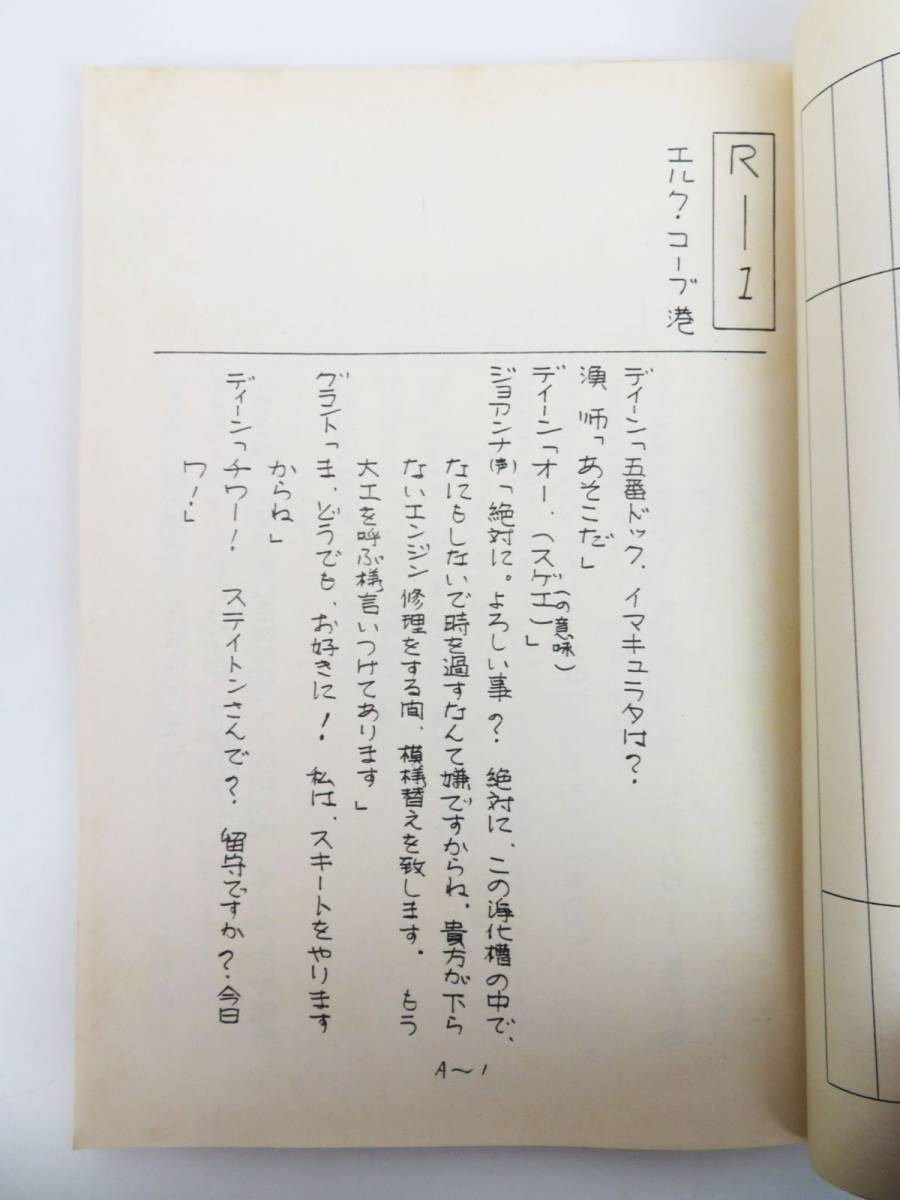 R—1
エルク・コーブ港
ディーン「五番ドック、イマキュラタは?
漁 師「あそこだ」
ディーン「オー、(スゲエ)」
(の意味)
ジョアンナ(声)「絶対に。よろしい事? 絶対に、この浄化槽の中で、
なにもしないで時を過すなんて嫌ですからね。貴方が下ら
ないエンジン修理をする間、模様替えを致します。 もう
大工を呼ぶ様言いつけてあります」
グラント「ま、どうでも、お好きに! 私は、スキートをやります
からね」
ディーン「チワー! ステイトンさんで? 留守ですか?今日
ワ!」
A〜1